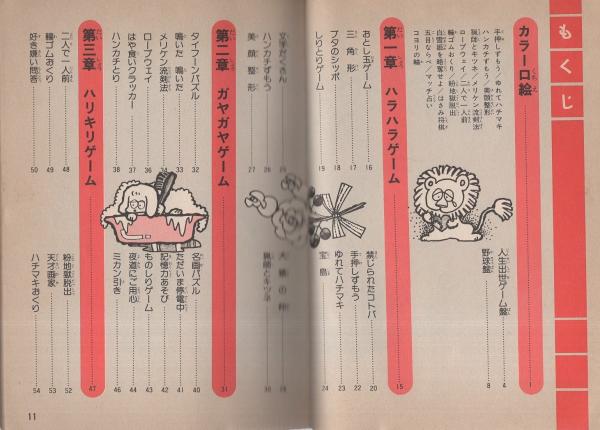 もくじ
カラー口絵……1
手押しずもう／ゆれてハチマキ
ハンカチずもう／美顔整形
猟師とキツネ／メリケン流剣法
ロープウェイ／二人で一人前
輪ゴムおくり／粉地獄脱出
白雪姫を略奪せよ／はさみ将棋
五目ならべ／マッチ占い
コヨリの輪
人生出世ゲーム盤……4
野球盤……8
第一章 ハラハラゲーム……15
おとし玉ゲーム……16
三角形……17
ブタのシッポ……18
しりとりゲーム……19
禁じられたコトバ……20
手押しずもう……22
ゆれてハチマキ……23
宝島……24
文字だくさん
ハンカチずもう……26
美顔整形……27
猟師とキツネ……30
第二章 ガヤガヤゲーム……31
タイフーンパズル……32
鳴いた 鳴いた……33
メリケン流剣法……34
ロープウェイ……36
はや食いクラッカー……37
ハンカチとり……38
名画パズル……40
ただいま停電中……41
記憶力あそび……42
ものしりゲーム……43
夜道にご用心……44
ミカン引き……46
第三章 ハリキリゲーム……47
二人で一人前……48
輪ゴムおくり……49
好き嫌い問答……50
粉地獄脱出……52
天才画家……53
ハチマキおくり……54
11